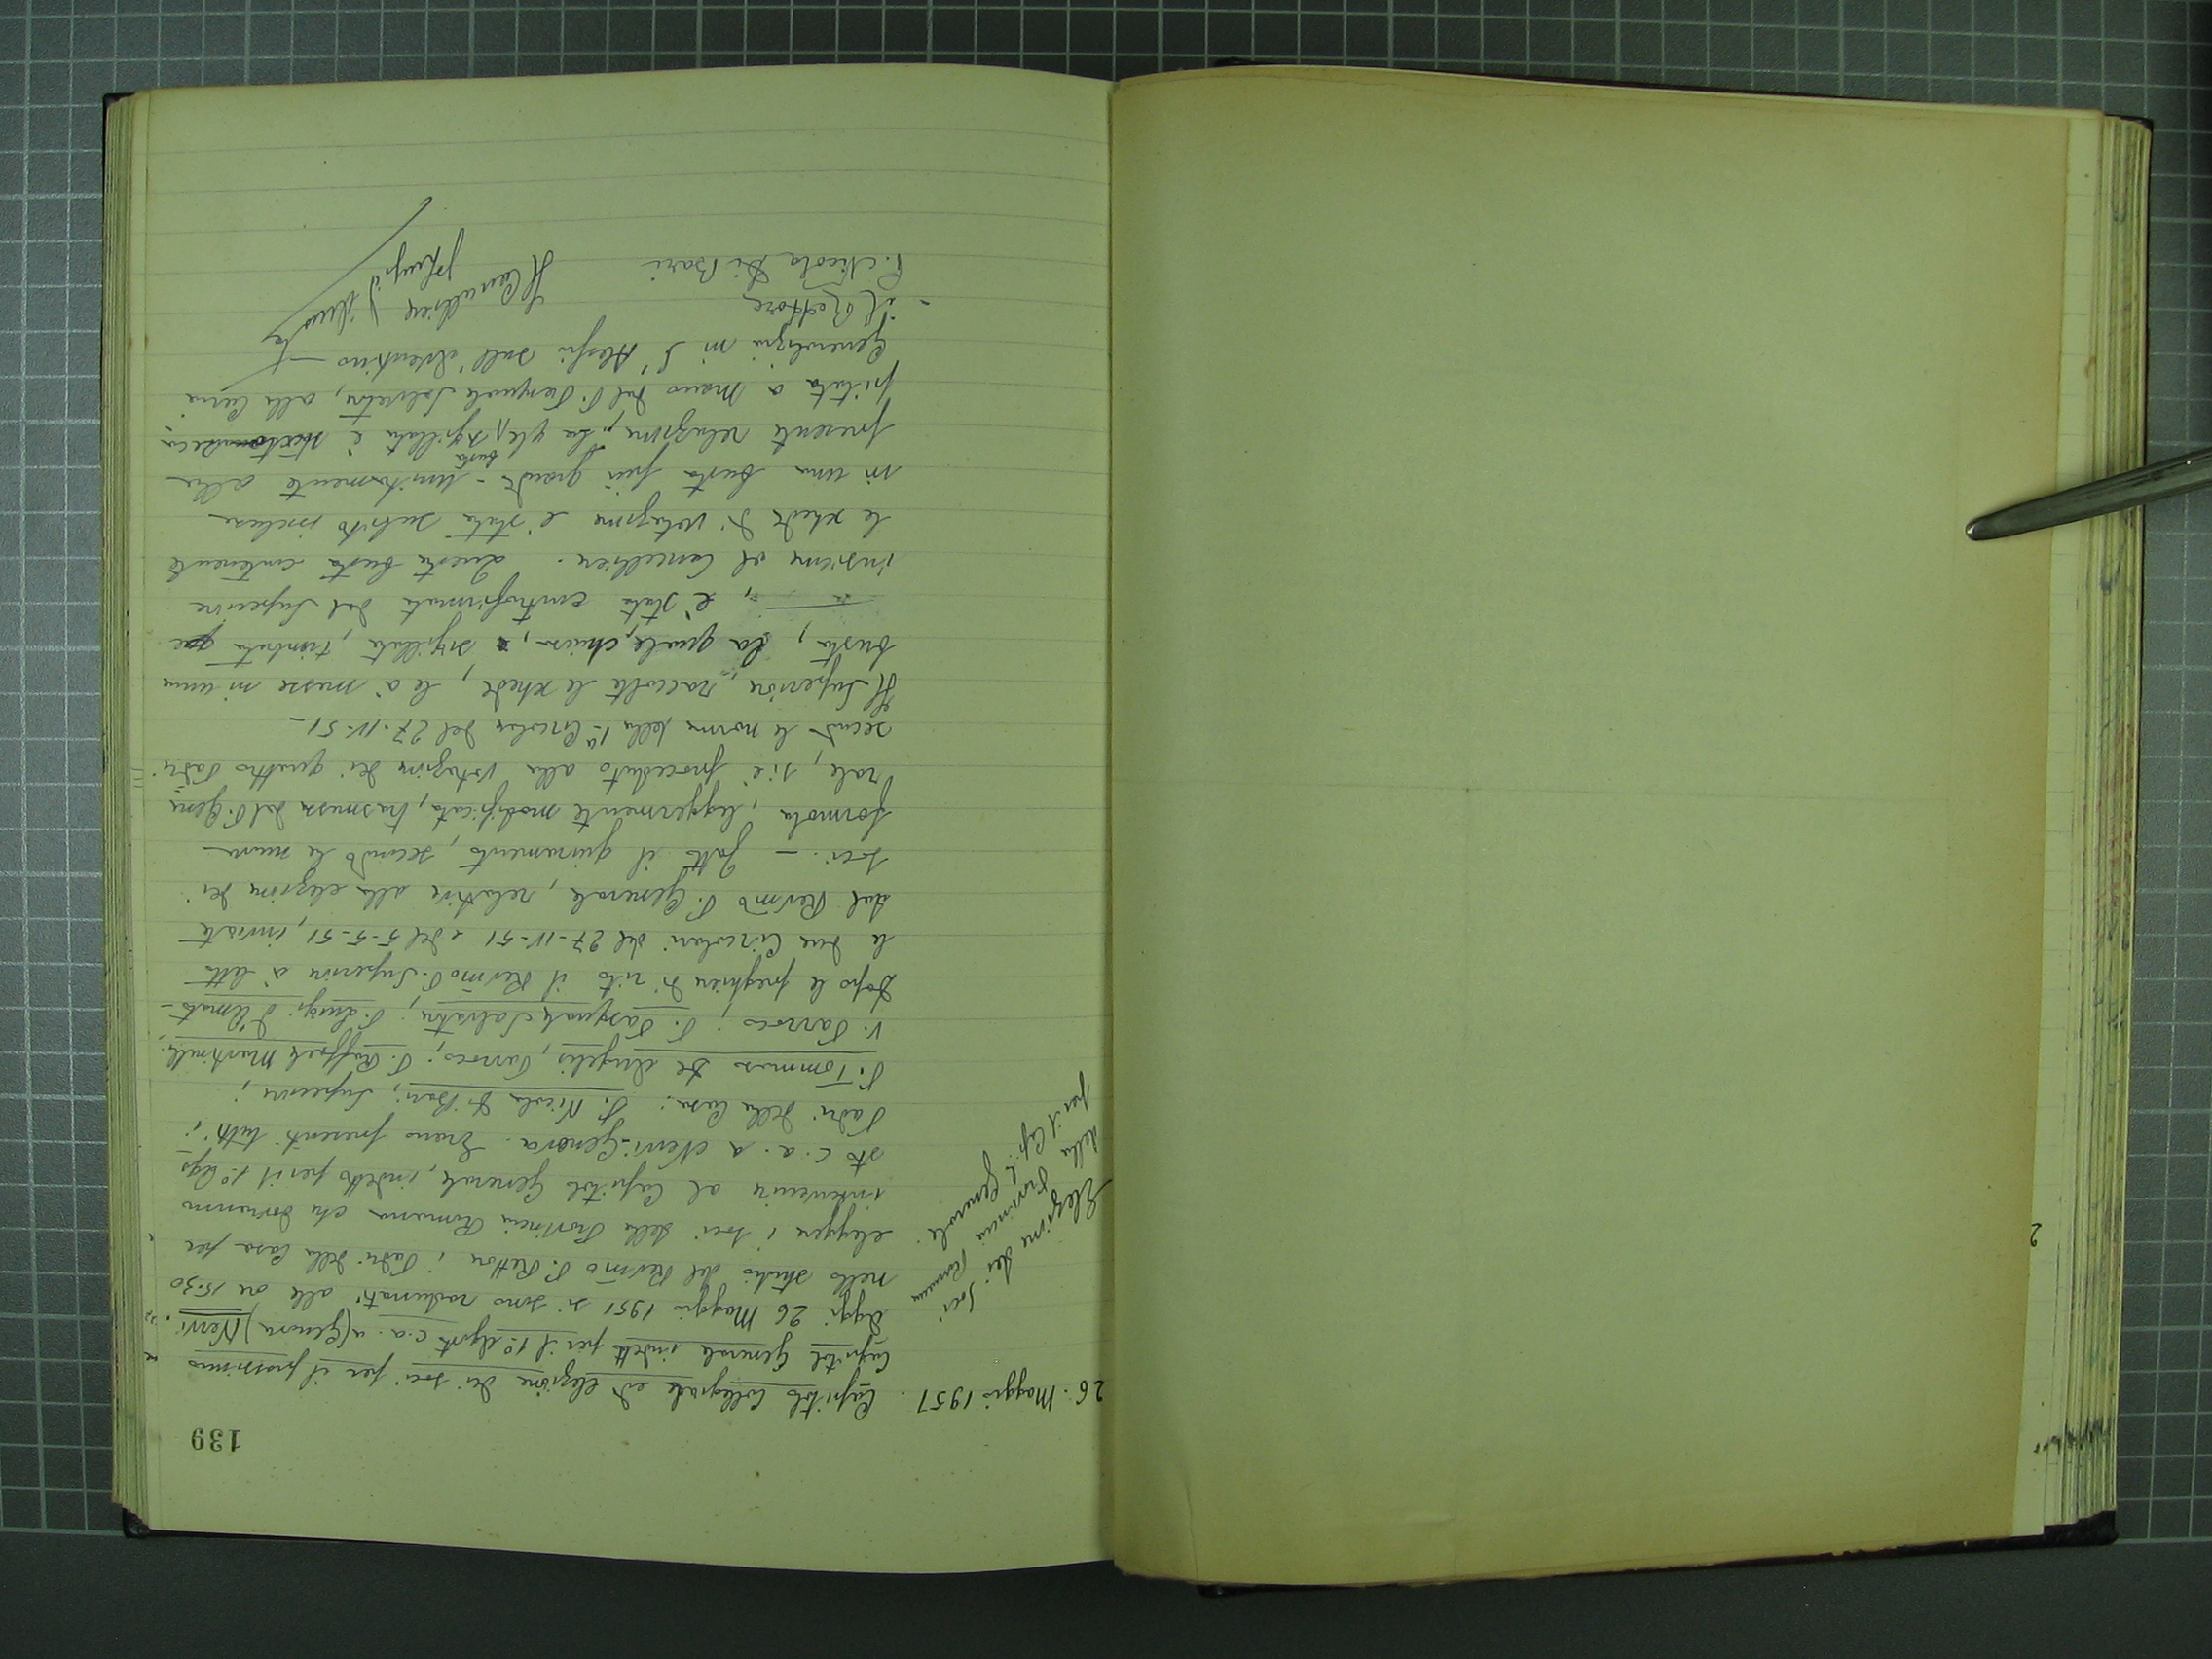 139
26. Maggio 1951. Capitolo Collegiale ed elezione dei soci per il prossimo
Capitolo Generale indetto per il 1º Agosto c.a. a (Genova) Nervi.
Elezione dei Soci
della Provincia Romana
per il Cap. Generale.
Oggi 26 Maggio 1951 si sono radunati alle ore 15.30
nello studio del Rev.mo P. Rettore i Padri della Casa per
eleggere i soci della Provincia Romana che dovranno
intervenire al Capitolo Generale, indetto per il 1º Ago-
sto c.a. a Nervi-Genova. Erano presenti tutti i
Padri della Casa: P. Nicola Di Bari, Superiore;
P. Tommaso De Angelis, Parroco; P. Raffaele Martinelli,
V. Parroco; P. Pasquale Salvatore; P. Luigi D'Amato -
Dopo le preghiere di rito il Rev.mo P. Superiore à letto
le due Circolari del 27-IV-51 e del 5-5-51, inviate
dal Rev.mo P. Generale, relative alla elezione dei
soci. - Fatto il giuramento, secondo la nuova
formola, leggermente modificata, trasmessa dal P. Gene
rale, si è proceduto alla votazione dei quattro Padri
secondo le norme della 1ª Circolare del 27-IV-51 -
Il Superiore, raccolte le schede, le à messe in una
busta, la quale, chiusa, sigillata, timbrata
, è stata controfirmata dal Superiore
insieme al Cancelliere. Questa busta contenente
le schede di votazione è stata subito inclusa
in una busta più grande - unitamente alla
presente relazione, La qle busta sigillata è stata reca
pitata a mano dal P. Pasquale Salvatore, alla Curia
Generalizia in S. Alessio sull'Aventino -
il Rettore
P. Nicola Di Bari
Il Cancelliere
2